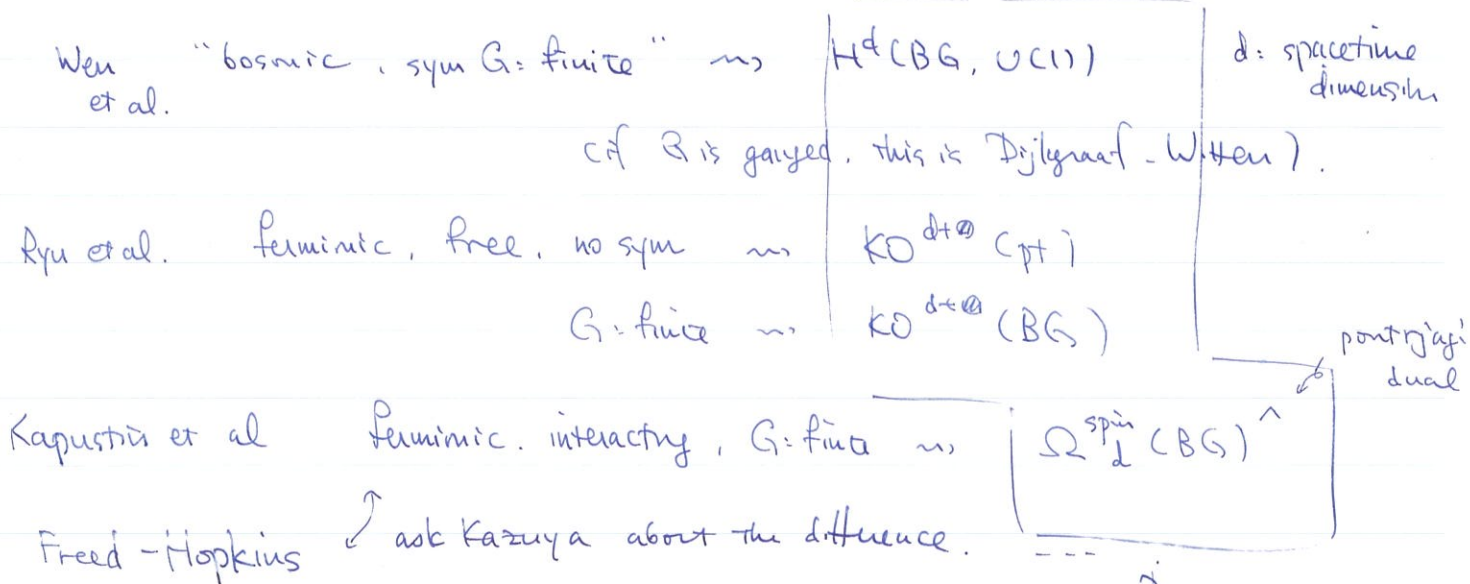 Wen "bosonic, sym G: finite" ⇝ H^d(BG, U(1)) d: spacetime
et al. dimension
(if G is gauged, this is Dijkgraaf-Witten).
Ryu et al. fermionic, free, no sym ⇝ KO^{d+ }(pt)
G: finite ⇝ KO^{d+ }(BG)
pontrjagi
dual
Kapustin et al fermionic. interacting, G: finite ⇝ Ω^{spin}_d(BG)^
Freed-Hopkins ask Kazuya about the difference. ---